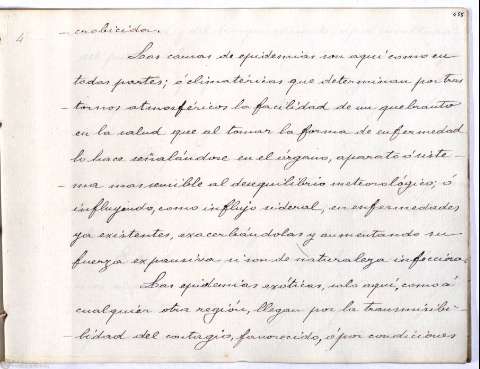 455
4
crobicida.
Las causas de epidemias son aquí como en
todas partes; ó climatéricas que determinan por tras
- tornos atmosféricos la facilidad de un quebranto
en la salud que al tomar la forma de enfermedad
lo hace señalándose en el órgano, aparato ó siste-
- ma mas sensible al desequilibrio meteorológico; ó
influyendo, como influjo sideral, en enfermedades
ya existentes, exacerbándolas y aumentando su
fuerza expansiva si son de naturaleza infecciosa.
Las epidemias exóticas, solo aquí, como á
cualquier otra región, llegan por la transmisibi-
- lidad del contagio, favorecido, ó por condiciones